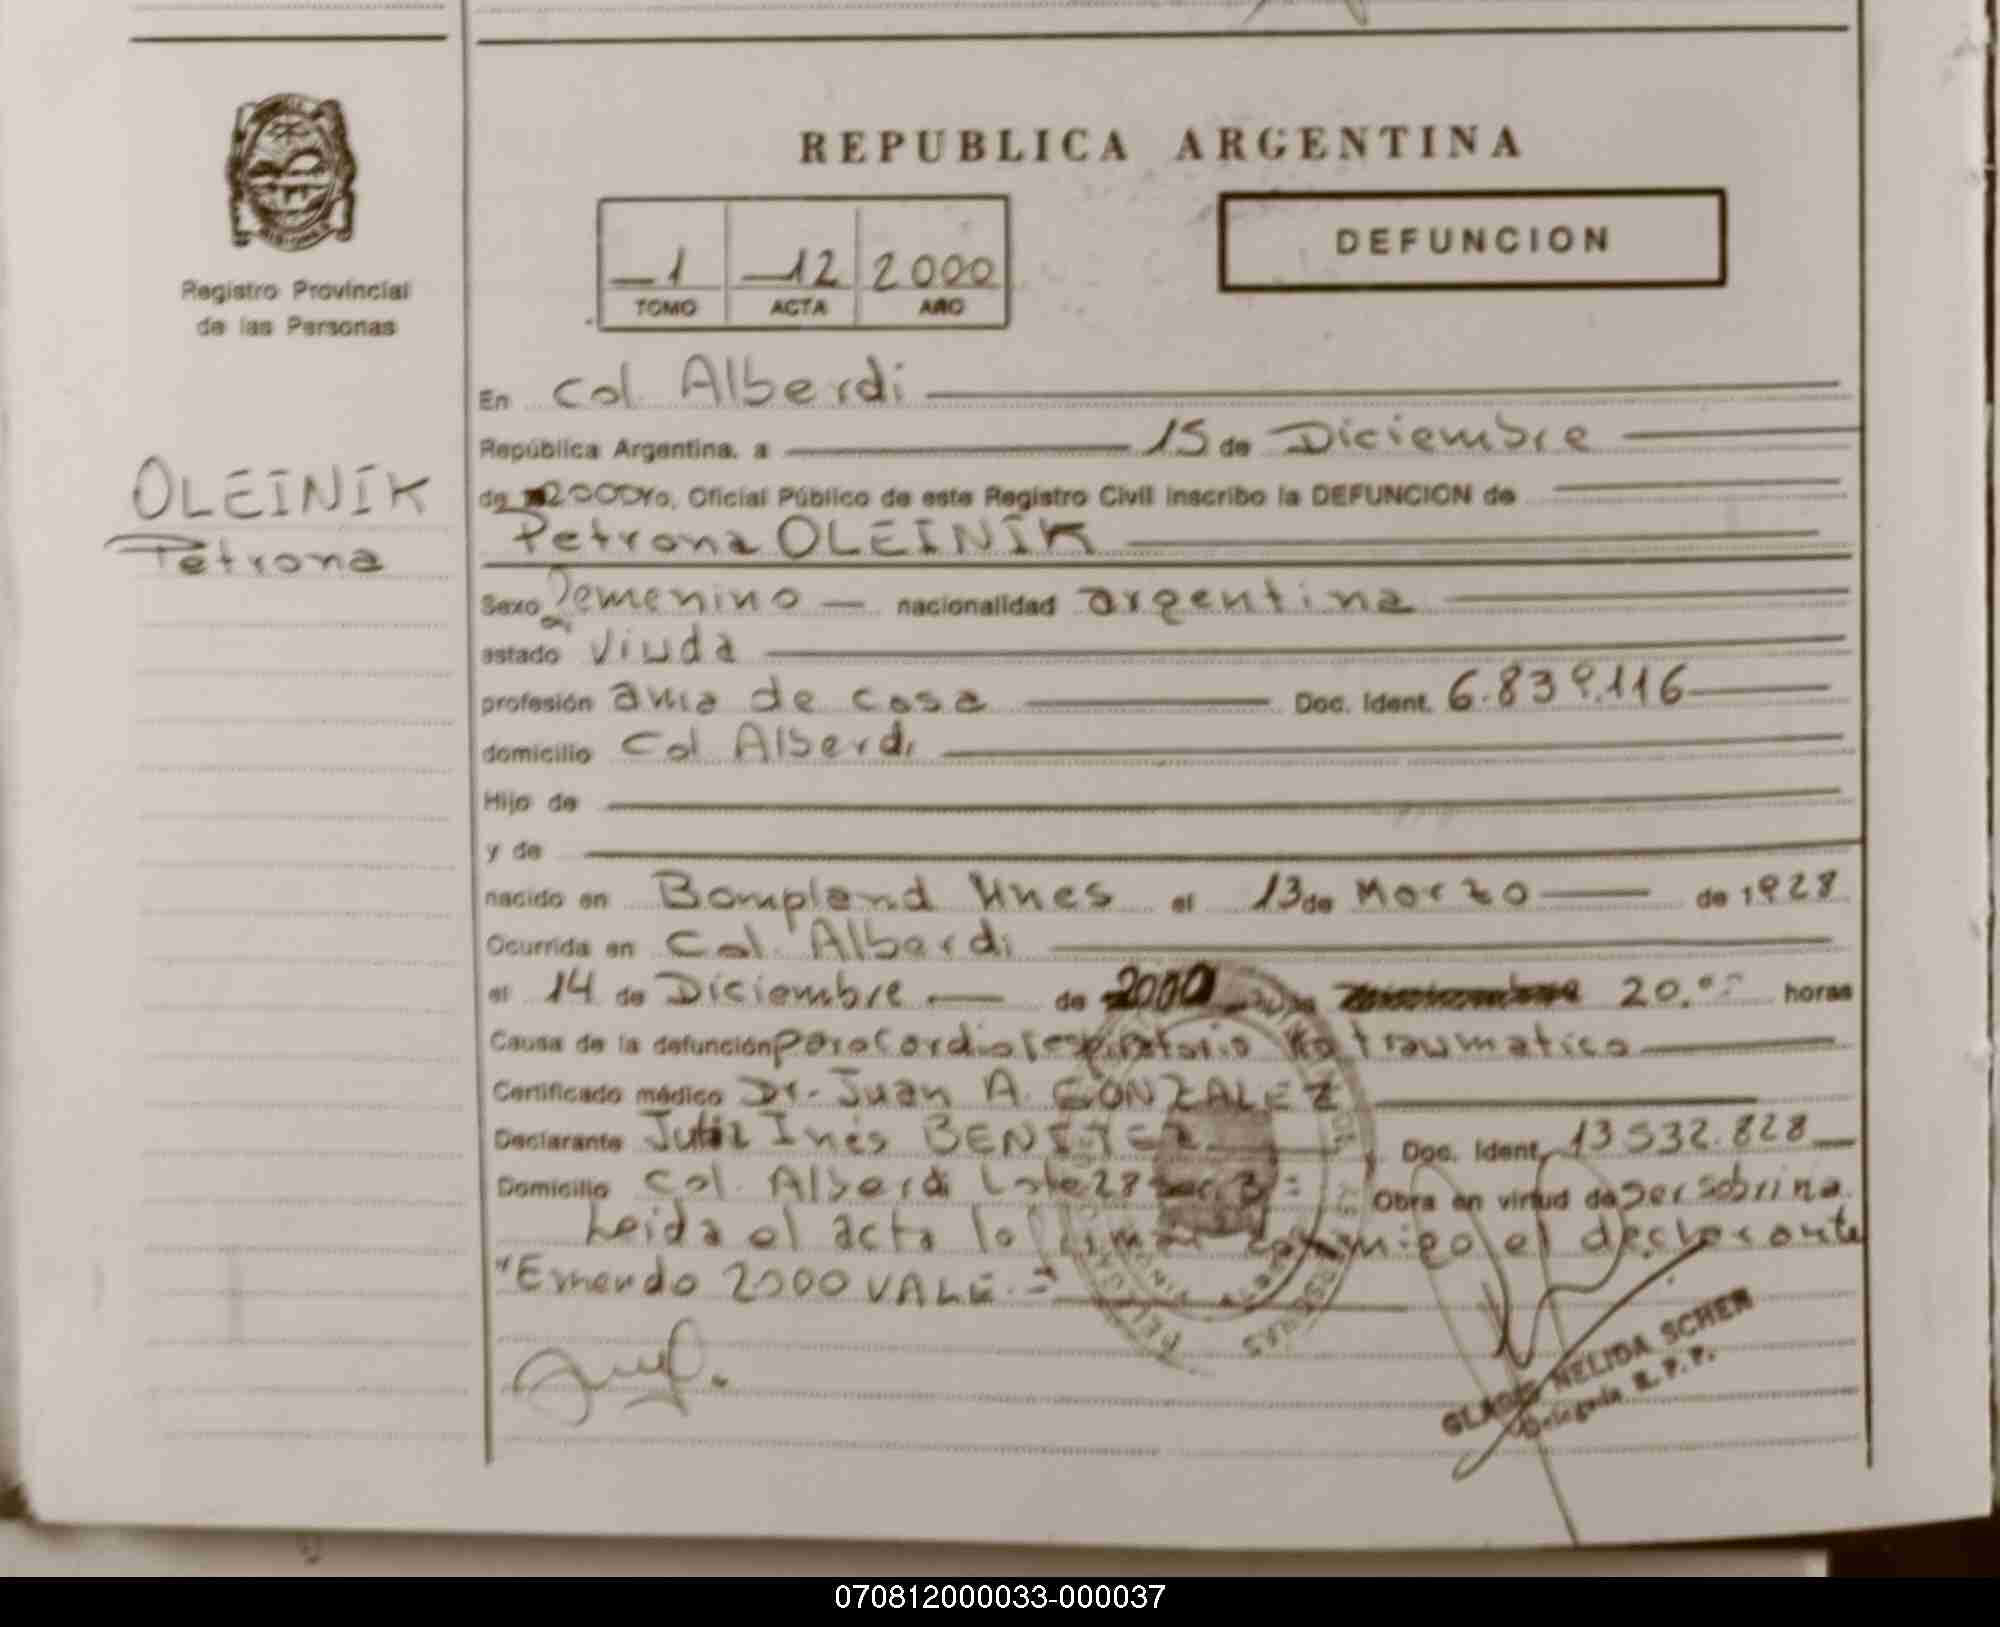 REPUBLICA ARGENTINA
1 12 2000
TOMO ACTA AÑO
DEFUNCION
Registro Provincial
de las Personas
OLEINIK
Petrona
En Col. Alberdi
República Argentina, a 15 de Diciembre
de 2000 Yo, Oficial Público de este Registro Civil inscribo la DEFUNCION de
Petrona OLEINIK
Sexo Femenino nacionalidad argentina
estado Viuda
profesión ama de casa Doc. Ident. 6.839.116
domicilio Col Alberdi
Hijo de
y de
nacido en Bompland Mnes el 13 de Marzo de 1928
Ocurrida en Col. Alberdi
el 14 de Diciembre de 2000 20.00 horas
Causa de la defunción paro cardiorespiratorio no traumatico
Certificado médico Dr. Juan A. GONZALEZ
Declarante Inés BENITEZ Doc. Ident. 13532.828
Domicilio Col. Alberdi Lote 28 Sec. 3 = Obra en virtud de ser sobrina.
Leida el acta la firma conmigo el declarante
"Emendo 2000 VALE.="
NELIDA SCHER
Delegada R. P. P.
070812000033-000037